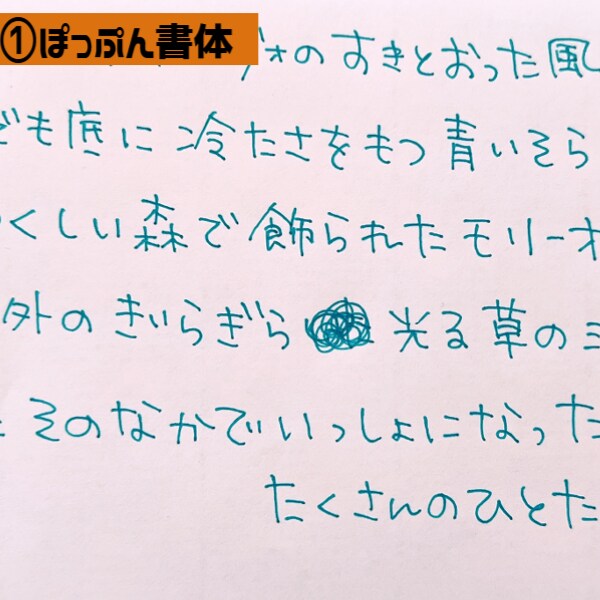 ①ぽっぷん書体
ヴォのすきとおった風
でも底に冷たさをもつ青いそら
くしい森で飾られたモリーオ
外のぎいらぎら光る草の
そのなかでいっしょになった
たくさんのひとた